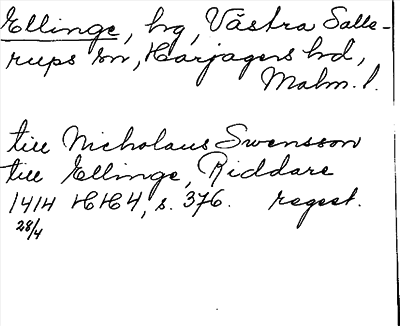 Ellinge, hg, Västra Salle-
rups sn, Harjagers hd,
Malm. l.
till Nicholaus Swensson
till Ellinge, Riddare
1414 HH4, s. 376. regest.
28/4